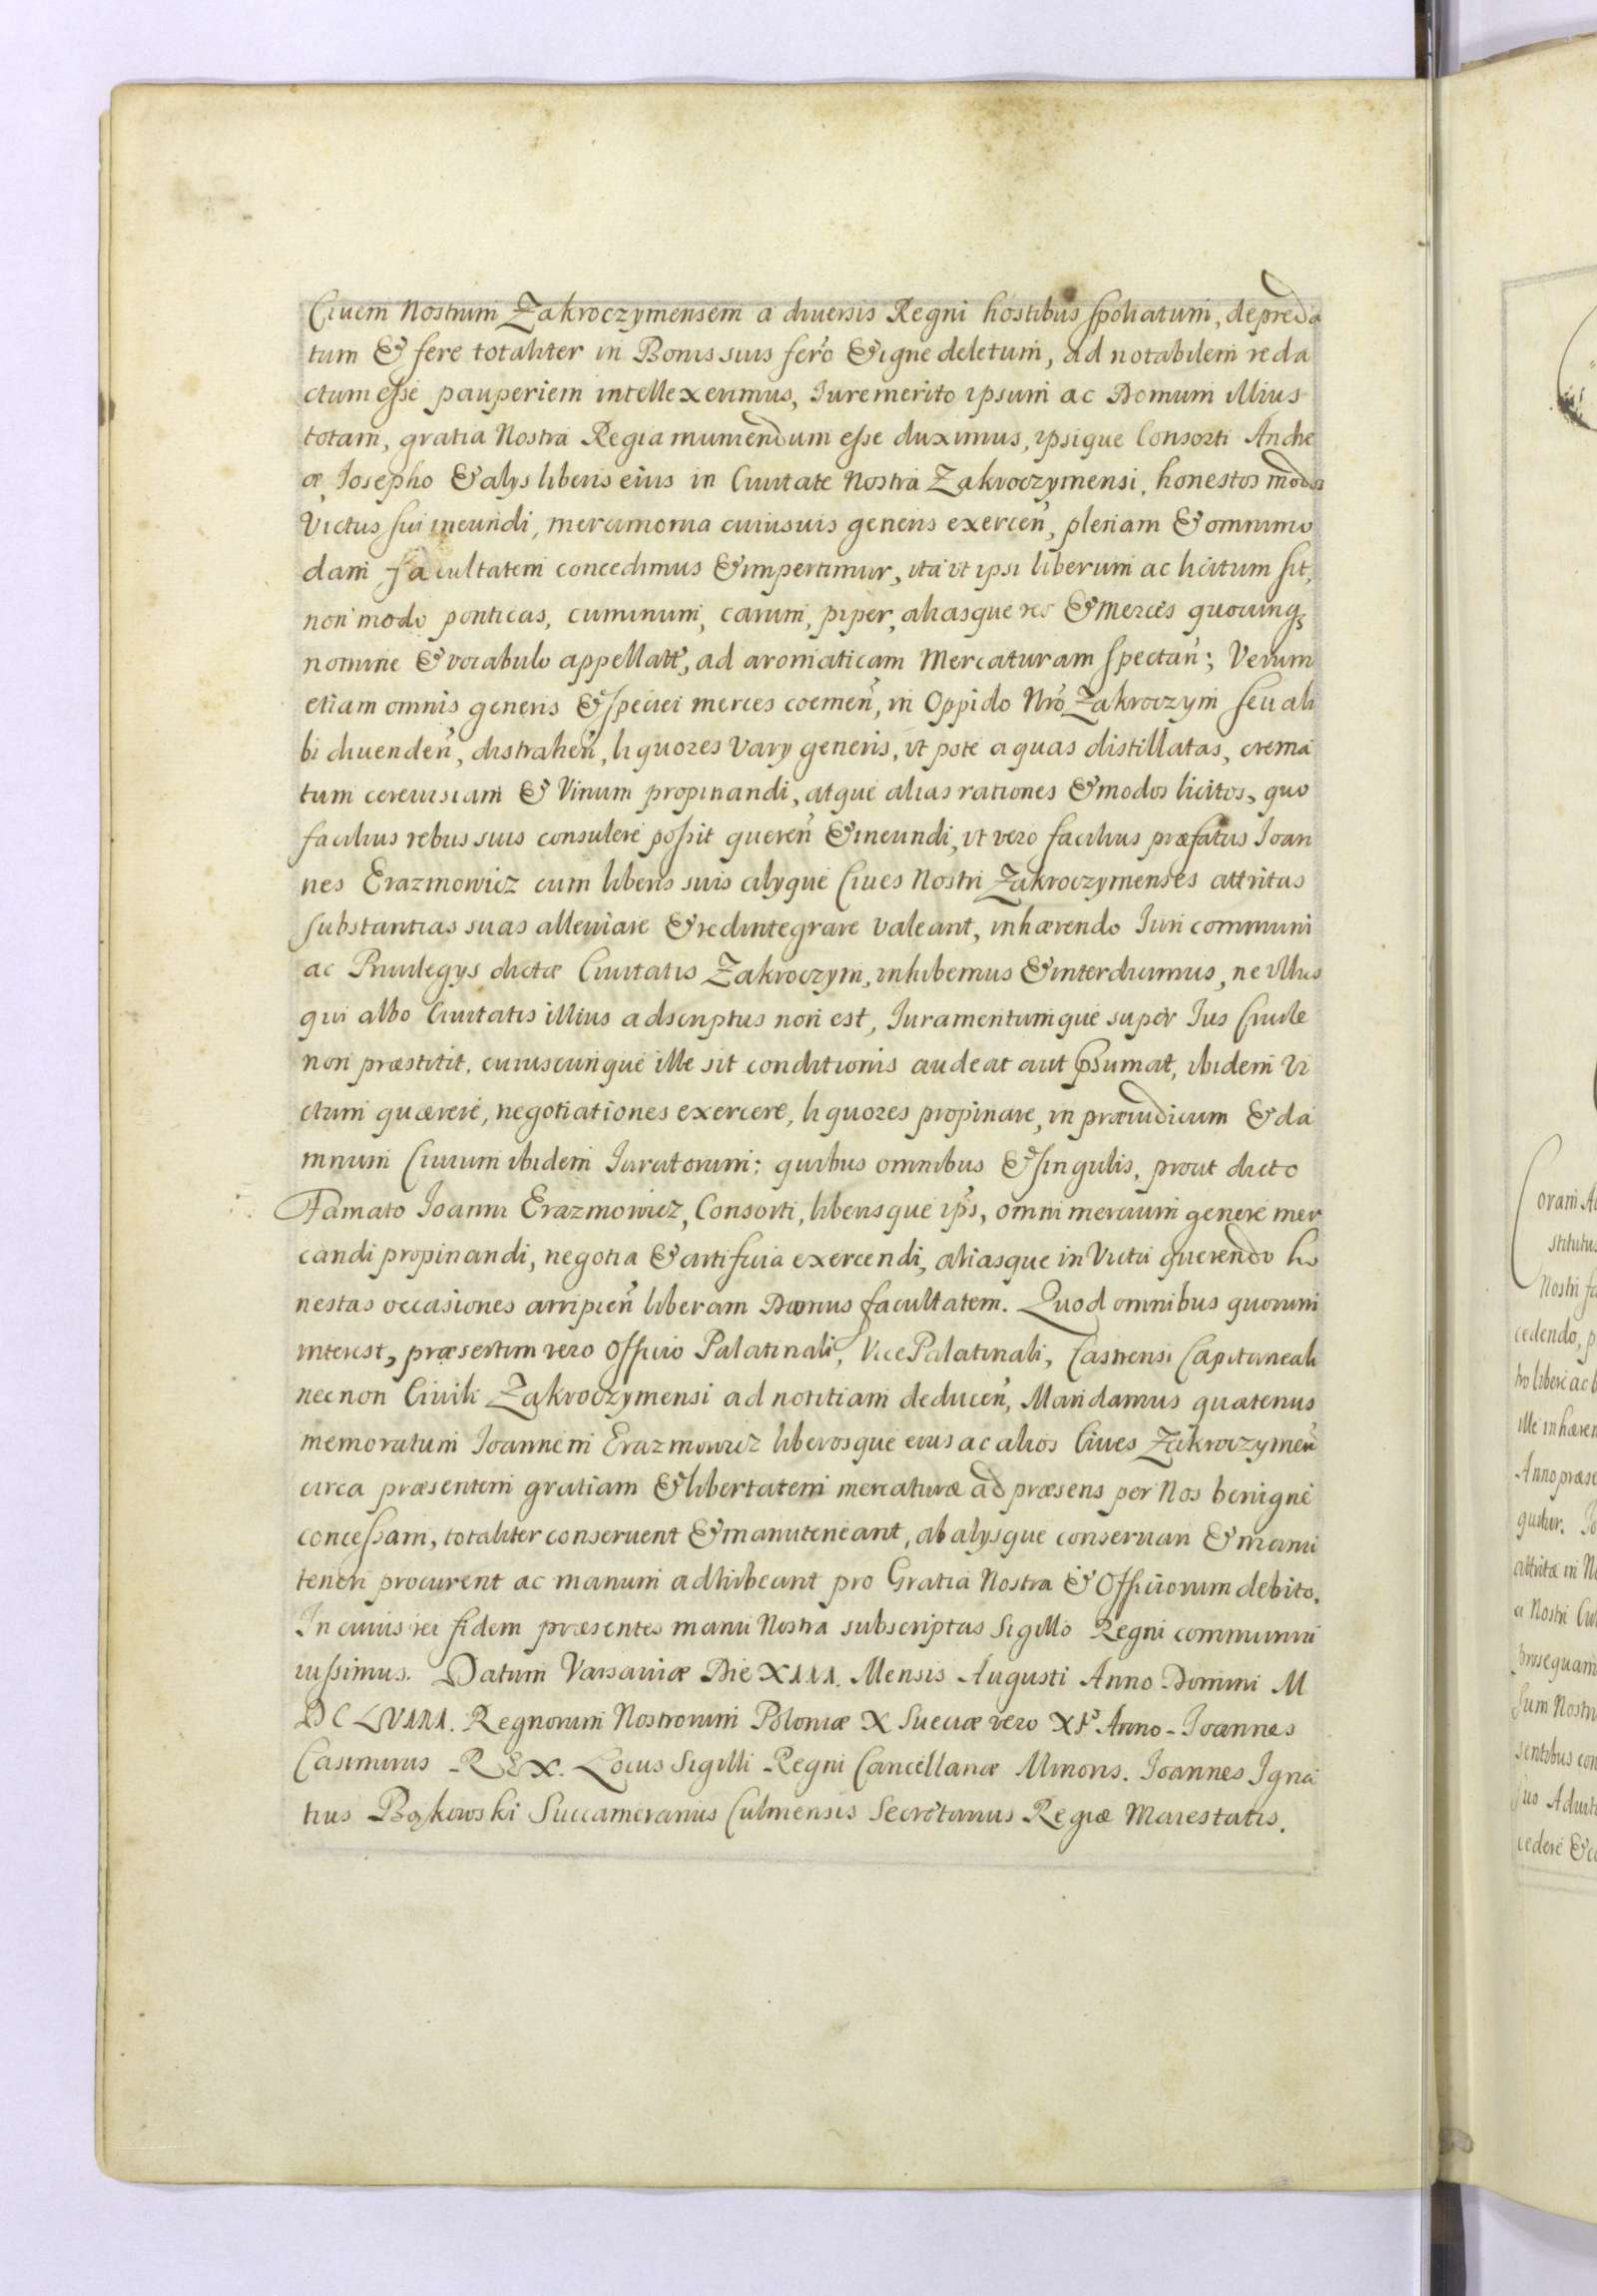 Ciuem Nostrum Zakroczymensem a diuersis Regni hostibus spoliatum, depreda
tum & fere totaliter in Bonis suis ferro & igne deletum, ad notabilem reda
ctum esse pauperiem intellexerimus, Iure merito ipsum ac Domum illius
totam, gratia Nostra Regia muniendum esse duximus, ipsique Consorti Andre
æ, Iosepho & alys liberis eius in Ciuitate Nostra Zakroczymensi, honestos modos
Victus sui ineundi, mercimonia cuiusuis generis exercen̄, plenam & omnimo
dam facultatem concedimus & impertimur, ita vt ipsi liberum ac licitum sit,
non modo ponticas, cuminum, carum, piper, aliasque res & Merces quocunq3
nomine & vocabulo appellatt, ad aromaticam Mercaturam spectan̄; Verum
etiam omnis generis & speciei merces coemen̄, in Oppido Nrō Zakroczym seu ali
bi diuenden̄, distrahen̄, liquores Vary generis, vt pote aquas distillatas, crema
tum cereuisiam & Vinum propinandi, atque alias rationes & modos licitos, quo
facilius rebus suis consulere possit queren̄ & ineundi, vt vero facilius præfatus Ioan
nes Erazmowicz cum liberis suis alyque Ciues Nostri Zakroczymenses attritas
substantias suas alleuiare & redintegrare valeant, inhærendo Iuri communi
ac Priuilegys dictæ Ciuitatis Zakroczym, inhibemus & interdicimus, ne vllus
qui albo Ciuitatis illius adscriptus non est, Iuramentumque super Ius Ciuile
non præstitit, cuiuscunque ille sit conditionis audeat aut p̄sumat, ibidem Vi
ctum quærere, negotiationes exercere, liquores propinare, in præiudicium & da
mnum Ciuium ibidem Iuratorum: quibus omnibus & singulis, prout dicto
Famato Ioanni Erazmowicz, Consorti, liberisque ips̄, omni mercium genere mer
candi propinandi, negotia & artificia exercendi, aliasque in Victu querendo ho
nestas occasiones arripien̄ liberam Damus facultatem. Quod omnibus quorum
interest, præsertim vero Officio Palatinali, Vice Palatinali, Castrensi Capitaneali
nec non Ciuili Zakroczymensi ad notitiam deducen̄, Mandamus quatenus
memoratum Ioannem Erazmowicz liberosque eius ac alios Ciues Zakroczymen̄
circa præsentem gratiam & libertatem mercaturæ ad præsens per Nos benigne
concessam, totaliter conseruent & manuteneant, ab alysque conseruari & manu
teneri procurent ac manum adhibeant pro Gratia Nostra & Officiorum debito.
In cuius rei fidem præsentes manu Nostra subscriptas Sigillo Regni communiri
iussimus. Datum Varsauiæ Die XIII. Mensis Augusti Anno Domini M
DC LVIII. Regnorum Nostrorum Poloniæ X Sueciæ vero XI° Anno - Ioannes
Casimirus - REX. Locus Sigilli - Regni Cancellariæ Minoris. Ioannes Igna
tius Bąkowski Succamerarius Culmensis Secretarius Regiæ Maiestatis.
oram
stitutus
Nostri
cedendo,
tro libere ac
ille inhæren
Anno
guitur.
attritæ in
a Nostri
prosequam
sum Nostr
sentibus con
cedere &